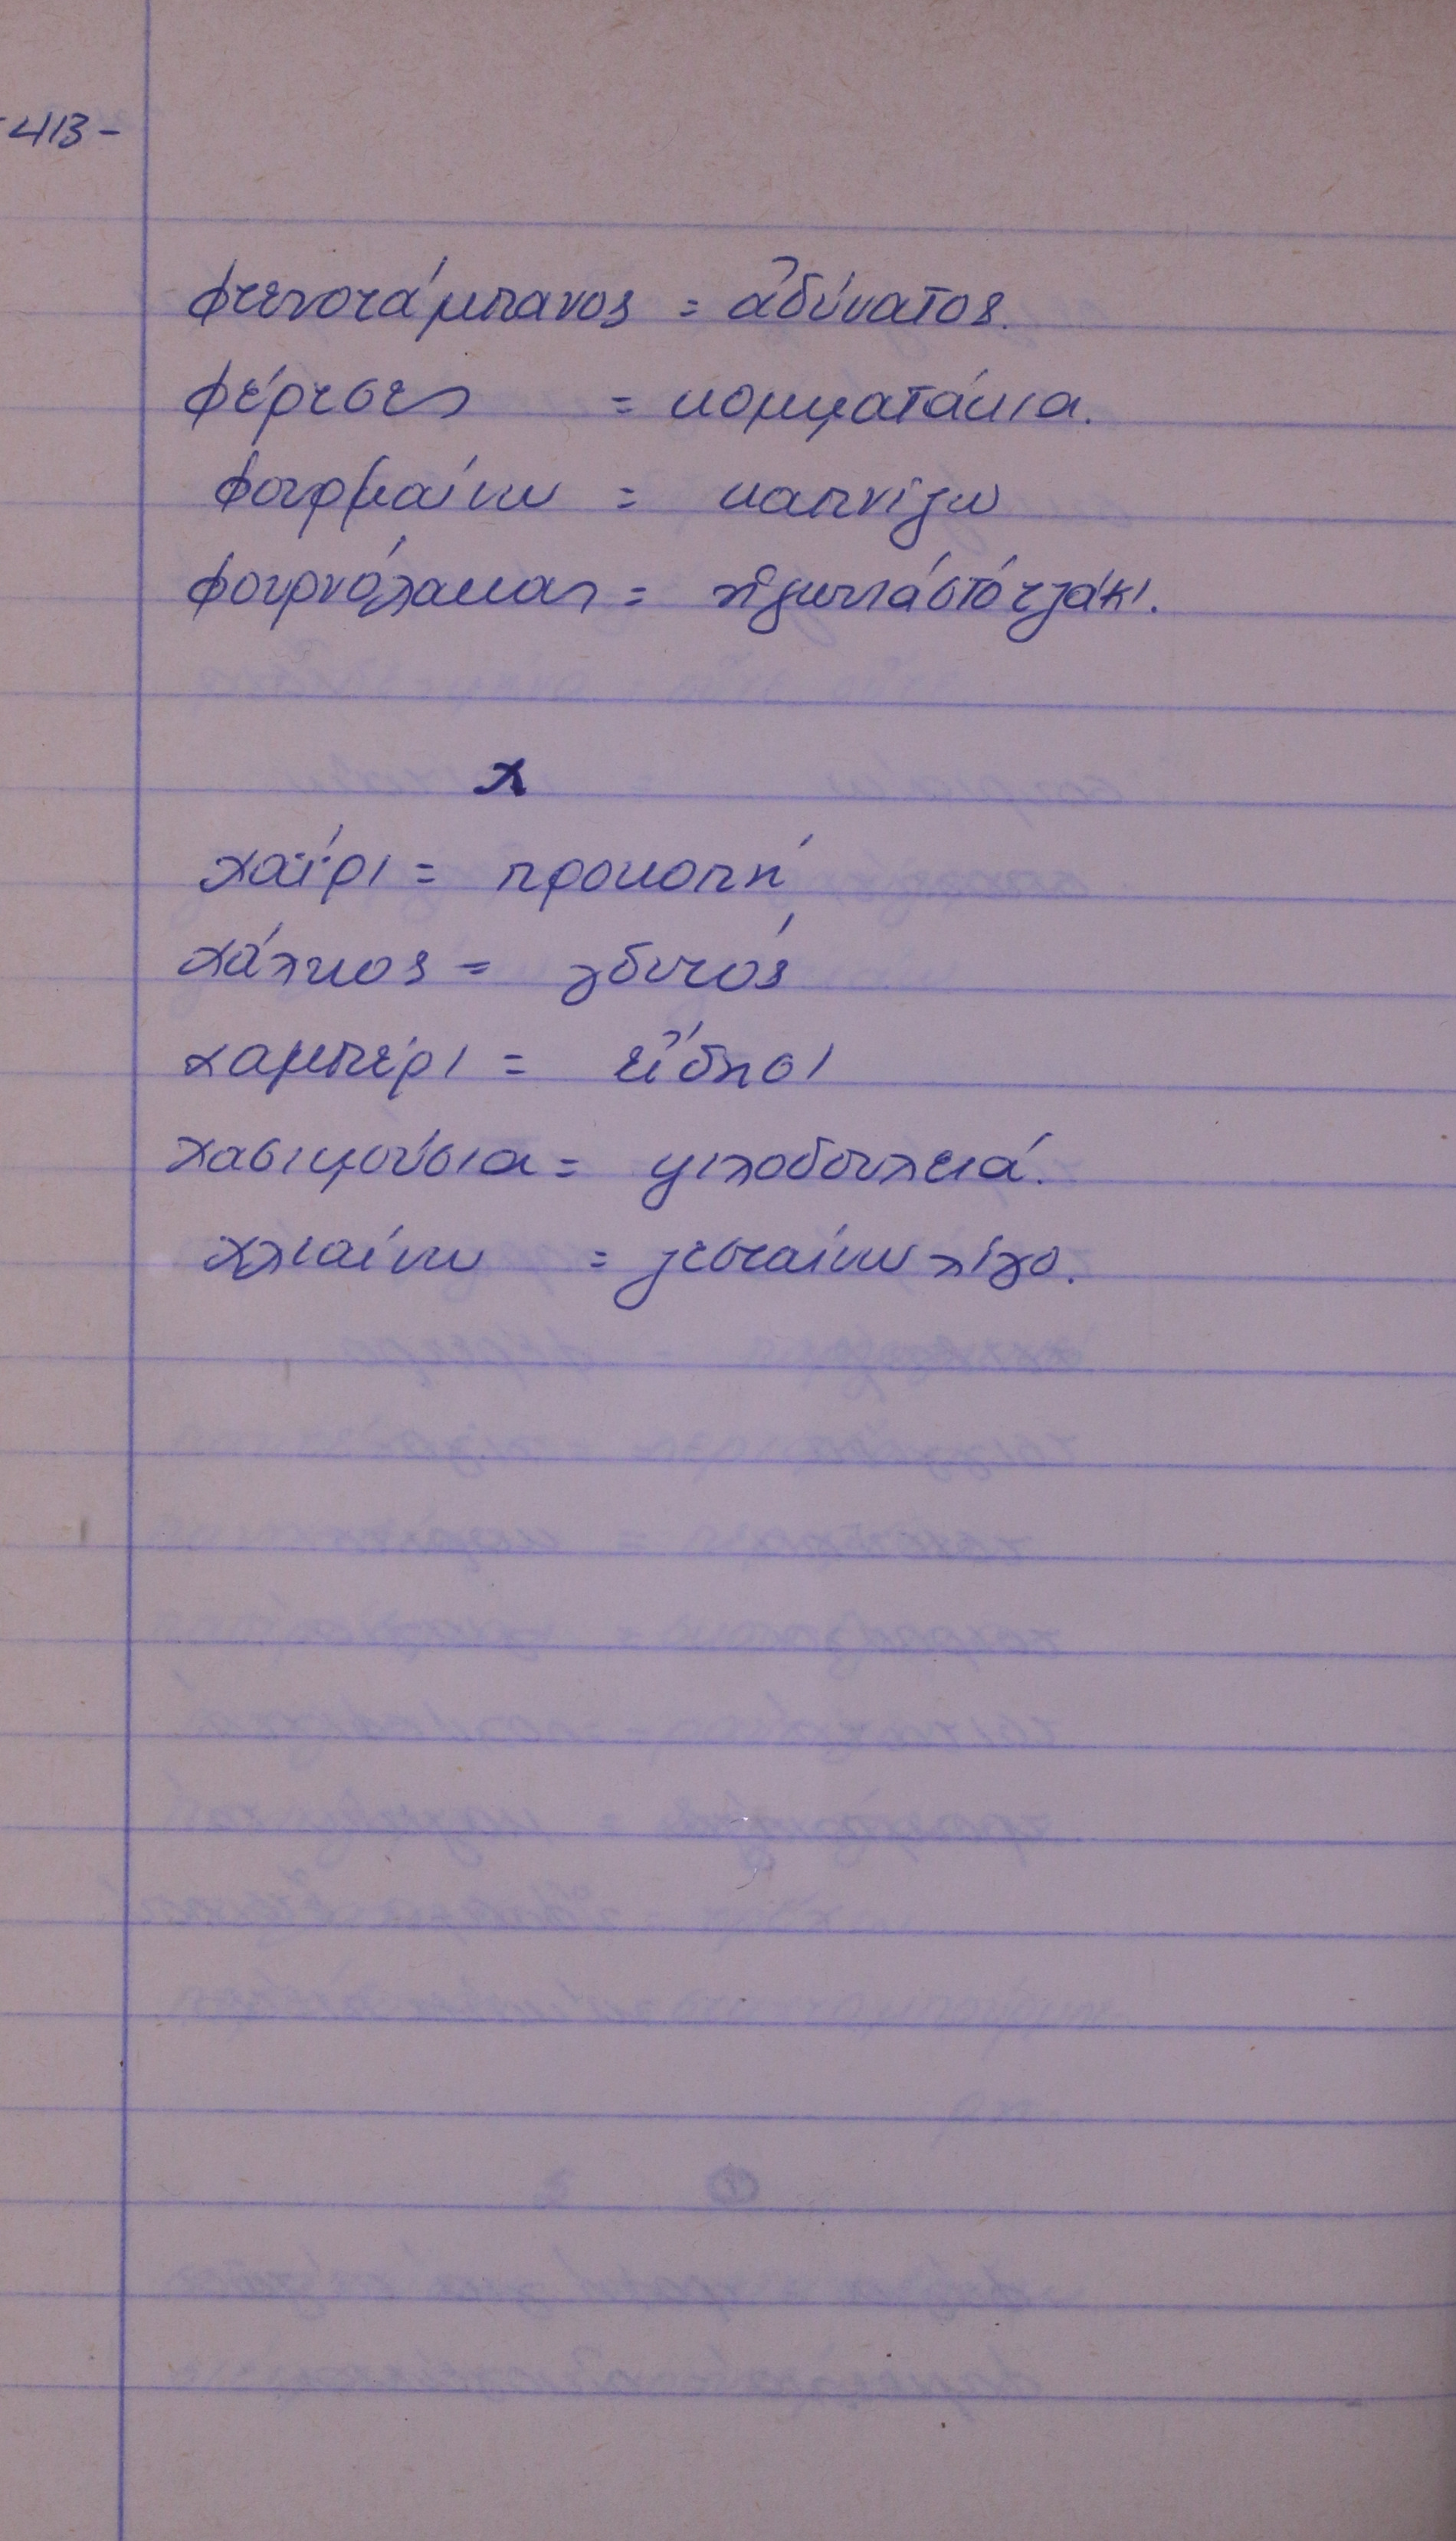 -413-
φτενοτάμπανος = ἀδύνατος.
φέρτσες = κομματάκια.
φουρμαίνω = καπνίζω
φουρνόλακας =
χ
χαΐρι = προκοπή
χάλκος = χδυτός
χαμπέρι = εἴδησι
χασιμούσια = ψιλοδουλειά.
χλιαίνω = ζεσταίνω λίγο.